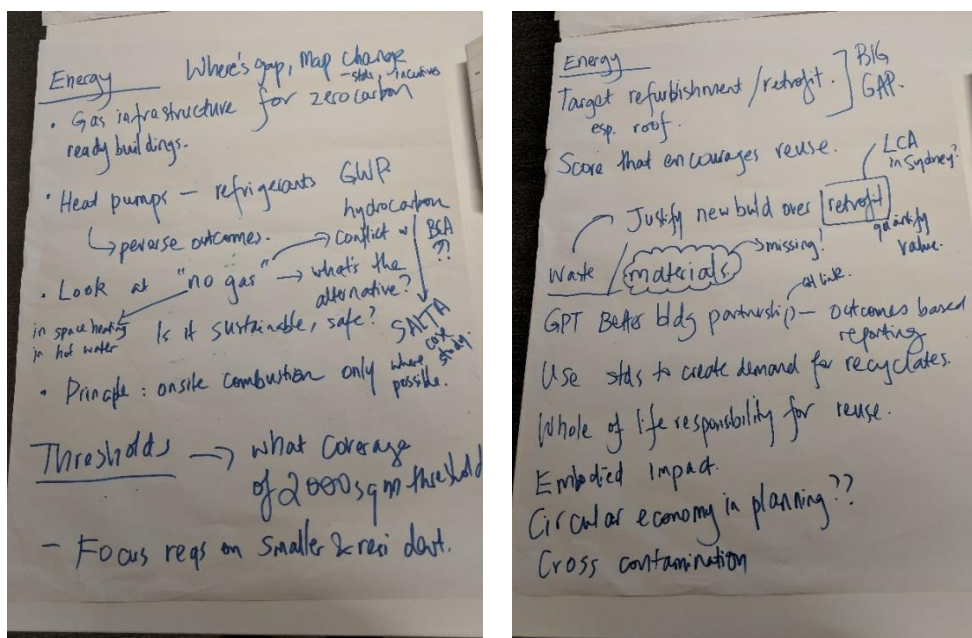 Energy
Where's gap, Map change
- stds, incentives
• Gas infrastructure for zero carbon
ready buildings.
• Heat pumps — refrigerants GWP
hydrocarbon
↳ perverse outcomes.
→ Conflict w BCA
??
• Look at "no gas" → what's the
alternative?
in space heating
in hot water
Is it sustainable, safe?
SALTA
case
study.
• Principle: onsite combustion only where
possible.
Thresholds → what coverage
of 2000sqm threshold
- Focus reqs on smaller & resi devt.
Energy
Target refurbishment / retrofit.
esp. roof.
BIG
GAP.
Score that encourages reuse.
LCA
in Sydney?
Justify new build over retrofit
quantify
value.
Waste / materials → missing!
link.
GPT Better bldg partnership — outcomes based
reporting
Use stds to create demand for recyclates.
Whole of life responsibility for reuse.
Embodied Impact.
Circular economy in planning??
Cross contamination